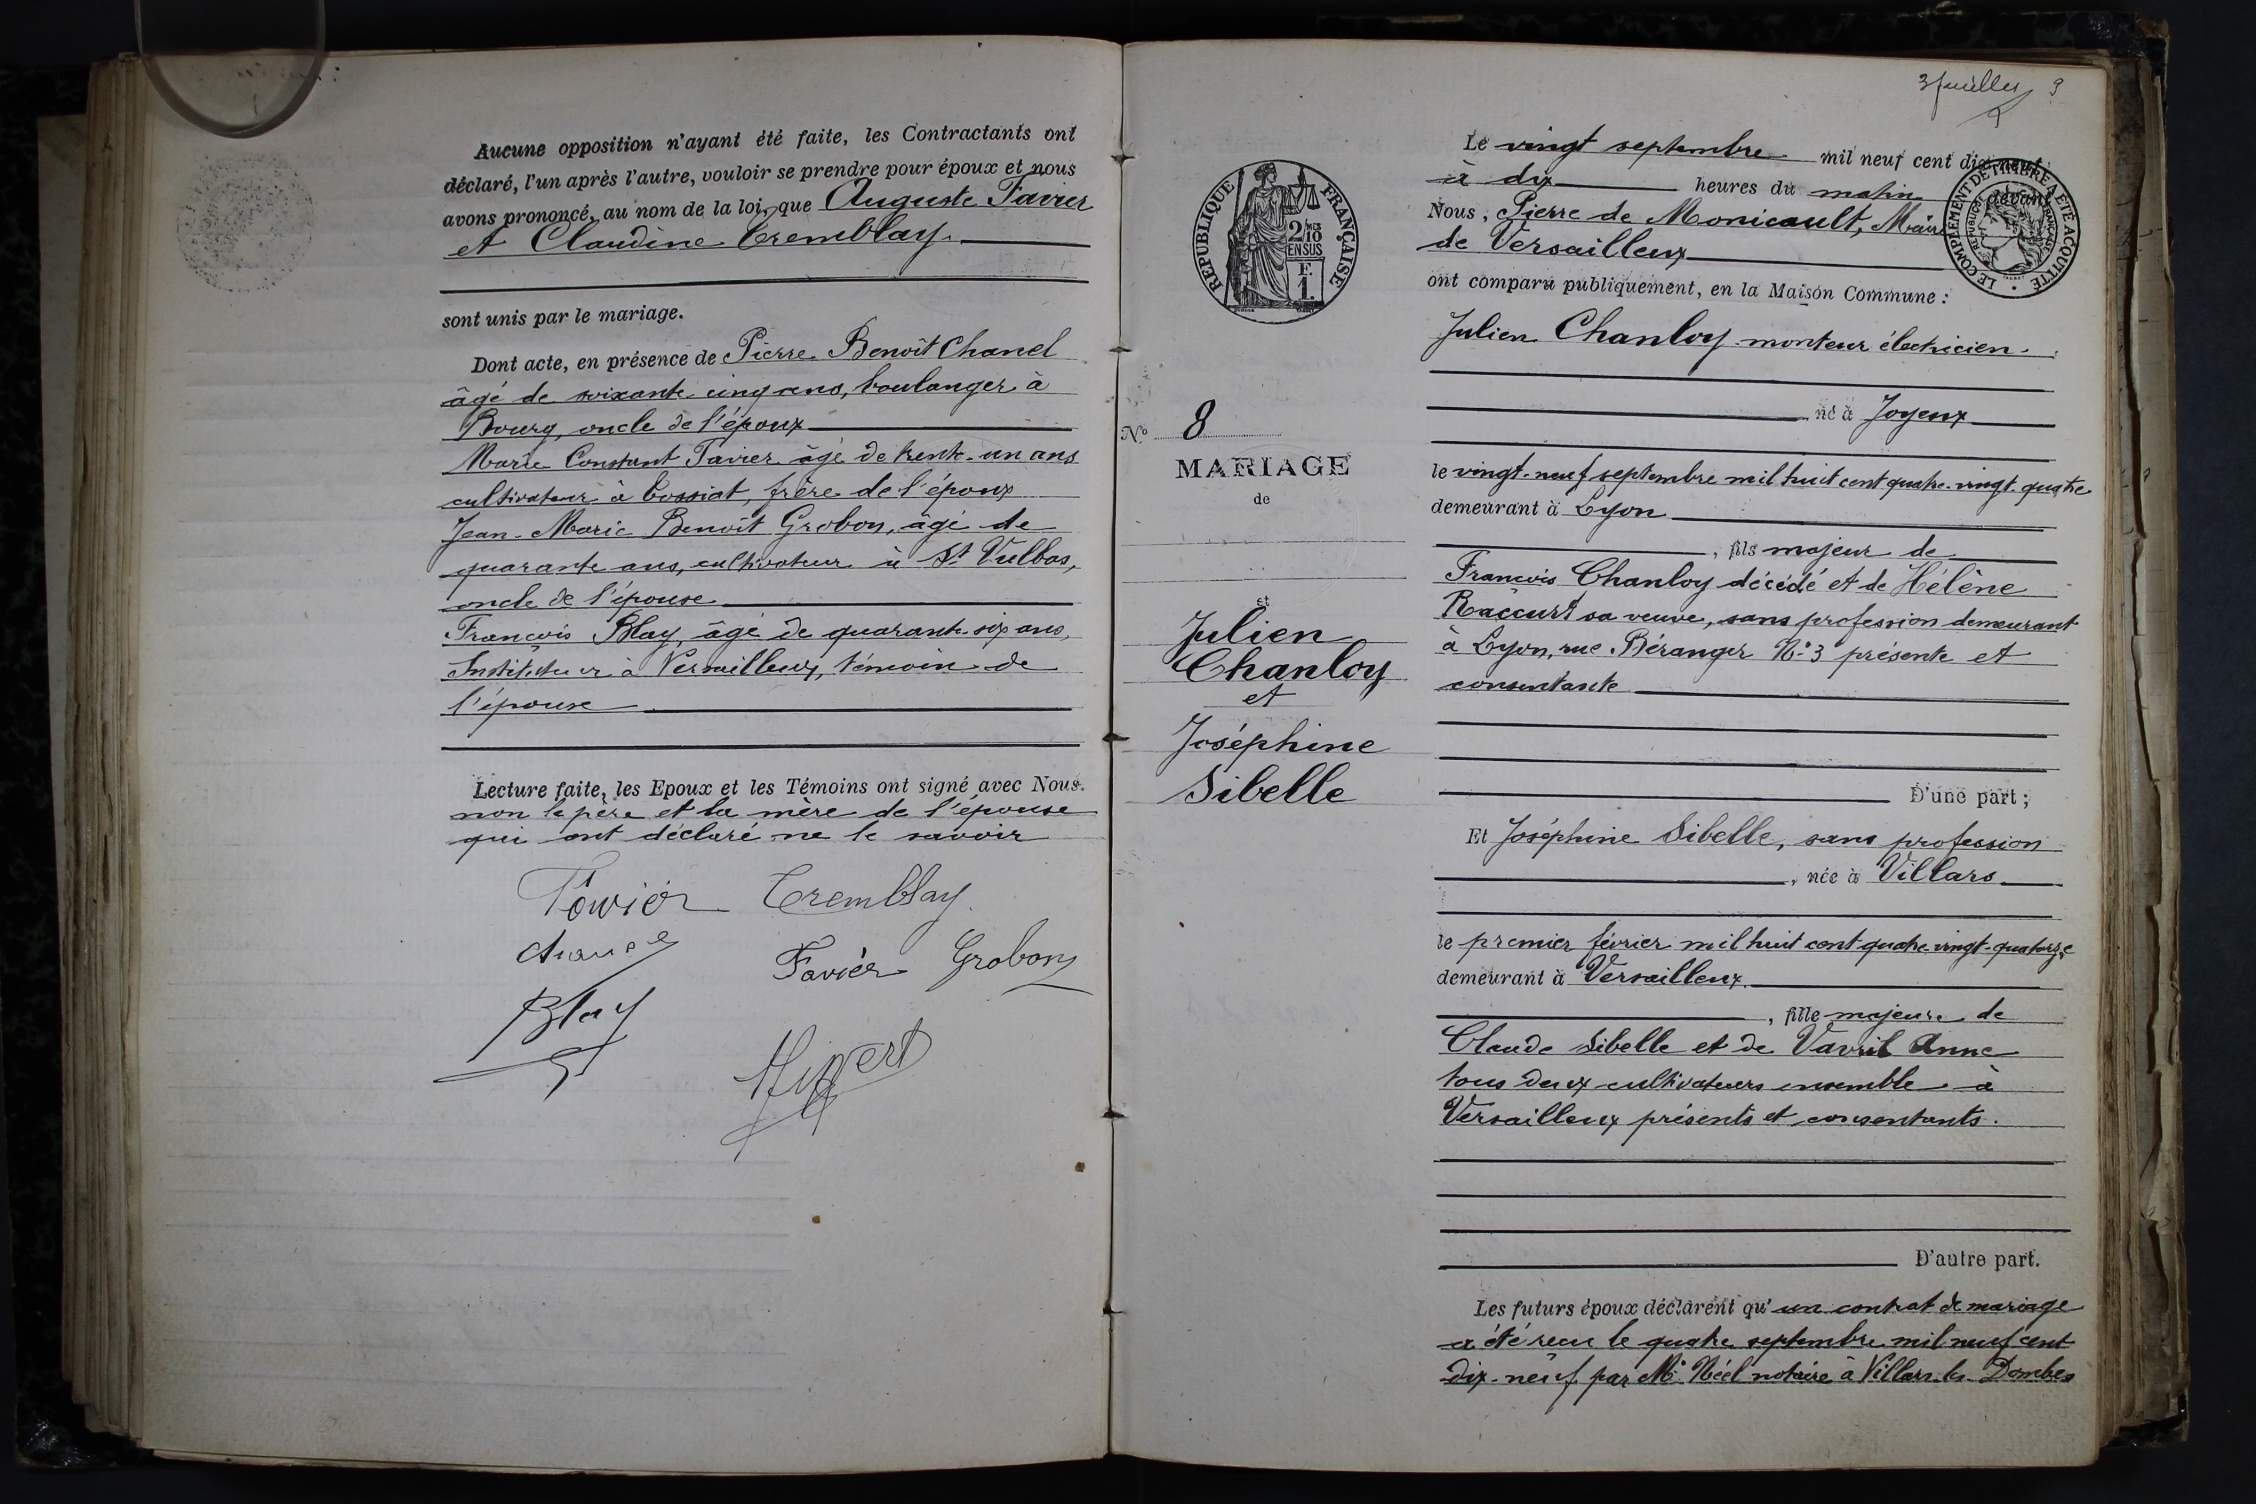 Aucune opposition n'ayant été faite, les Contractants ont
déclaré, l'un après l'autre, vouloir se prendre pour époux et nous
avons prononcé, au nom de la loi, que Auguste Favier
et Claudine Tremblay.
sont unis par le mariage.
Dont acte, en présence de Pierre Benoît Chanel
âgé de soixante cinq ans, boulanger à
Bourg, oncle de l'époux
Marie Constant Favier âgé de trente-un ans
cultivateur à Cossiat, frère de l'époux
Jean-Marie Benoît Grobon, âgé de
quarante ans, cultivateur à St Vulbas,
oncle de l'épouse
François Blay, âgé de quarante-six ans,
Instituteur à Versailleux, témoin de
l'épouse
Lecture faite, les Epoux et les Témoins ont signé avec Nous.
non le père et la mère de l'épouse
qui ont déclaré ne le savoir
Favier Tremblay
Chanel
Favier Grobon
Blay
3 feuilles 9
RÉPUBLIQUE FRANÇAISE
2/10 MES
EN SUS
F.
1.
LE COMPLEMENT DE TIMBRE A ÉTÉ ACQUITTÉ
Le vingt septembre mil neuf cent dix-neuf
à dix heures du matin devant
Nous, Pierre de Monicault, Maire
de Versailleux
ont comparu publiquement, en la Maison Commune :
Julien Chanloy monteur électricien.
né à Joyeux
le vingt-neuf septembre mil huit cent quatre-vingt-quatre
demeurant à Lyon
, fils majeur de
François Chanloy décédé et de Hélène
Raccurt sa veuve, sans profession demeurant
à Lyon, rue Béranger N° 3 présente et
consentante
D'une part ;
Et Joséphine Sibelle, sans profession
, née à Villars
le premier février mil huit cent-quatre-vingt-quatorze
demeurant à Versailleux
, fille majeure de
Claude Sibelle et de Vavril Anne
tous deux cultivateurs ensemble à
Versailleux présents et consentants.
D'autre part.
Les futurs époux déclarent qu'un contrat de mariage
a été reçu le quatre septembre mil neuf cent
dix-neuf par Me Néel notaire à Villars-les-Dombes
N° 8
MARIAGE
de
et
Julien
Chanloy
et
Joséphine
Sibelle